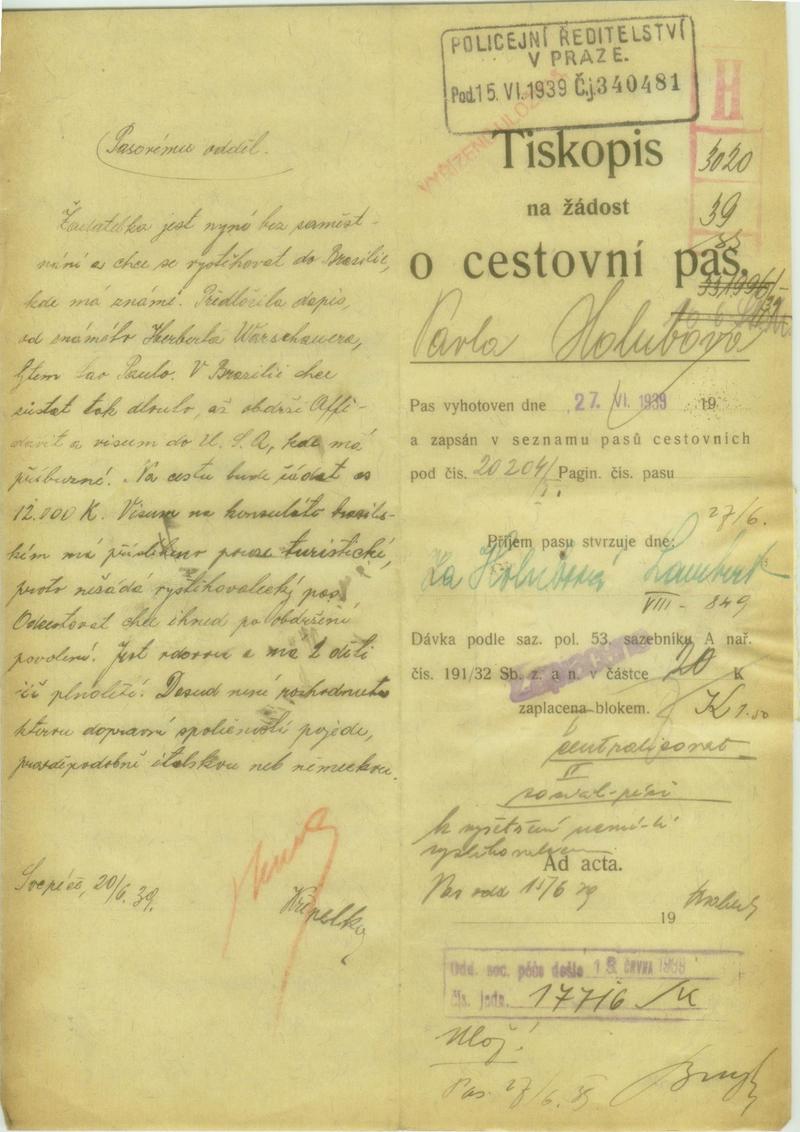 Pasovému odděl.
Žadatelka jest nyní bez zaměst-
nání a chce se vystěhovat do Brasilie,
kde má známé. Předložila dopis,
od známého Herberta Warschauera,
t/čtem Sao Paulo. V Brasilii chce
zůstat tak dlouho, až obdrží Affi-
davit a visum do U.S.A, kde má
příbuzné. Na cestu bude žádat as
12.000 K. Visum na konsulátě brasils-
kém má přislíbeno pouze turistické,
proto nežádá vystěhovalecký pas.
Odcestovat chce ihned po obdržení
povolení. Jest vdovou a má 2 děti
již plnoleté. Dosud není rozhodnuta
kterou dopravní společností pojede,
pravděpodobně italskou neb německou.
20/6. 39.
POLICEJNÍ ŘEDITELSTVÍ
V PRAZE.
Pod. 15. VI. 1939 Č.j. 340481
H
3020
39
VYŘÍZENO ULOŽ
Tiskopis
na žádost
o cestovní pas.
Pavla Holubová
Pas vyhotoven dne 27. VI. 1939 19
a zapsán v seznamu pasů cestovních
pod čís. 20204/ Pagin. čís. pasu
27/6.
Příjem pasu stvrzuje dne:
Za Holubová
VIII - 849
Dávka podle saz. pol. 53. sazebníku A nař.
čís. 191/32 Sb. z. a n. v částce 20 K
Zaplaceno
zaplacena blokem. K 1.50
centralisovat
IV
Ad acta.
Pas odd 15/6 39
19
Odd. soc. péče došlo 19. ČERVNA 1939
čís. jedn. 17716
Ulož!
Pas. 27/6. 39